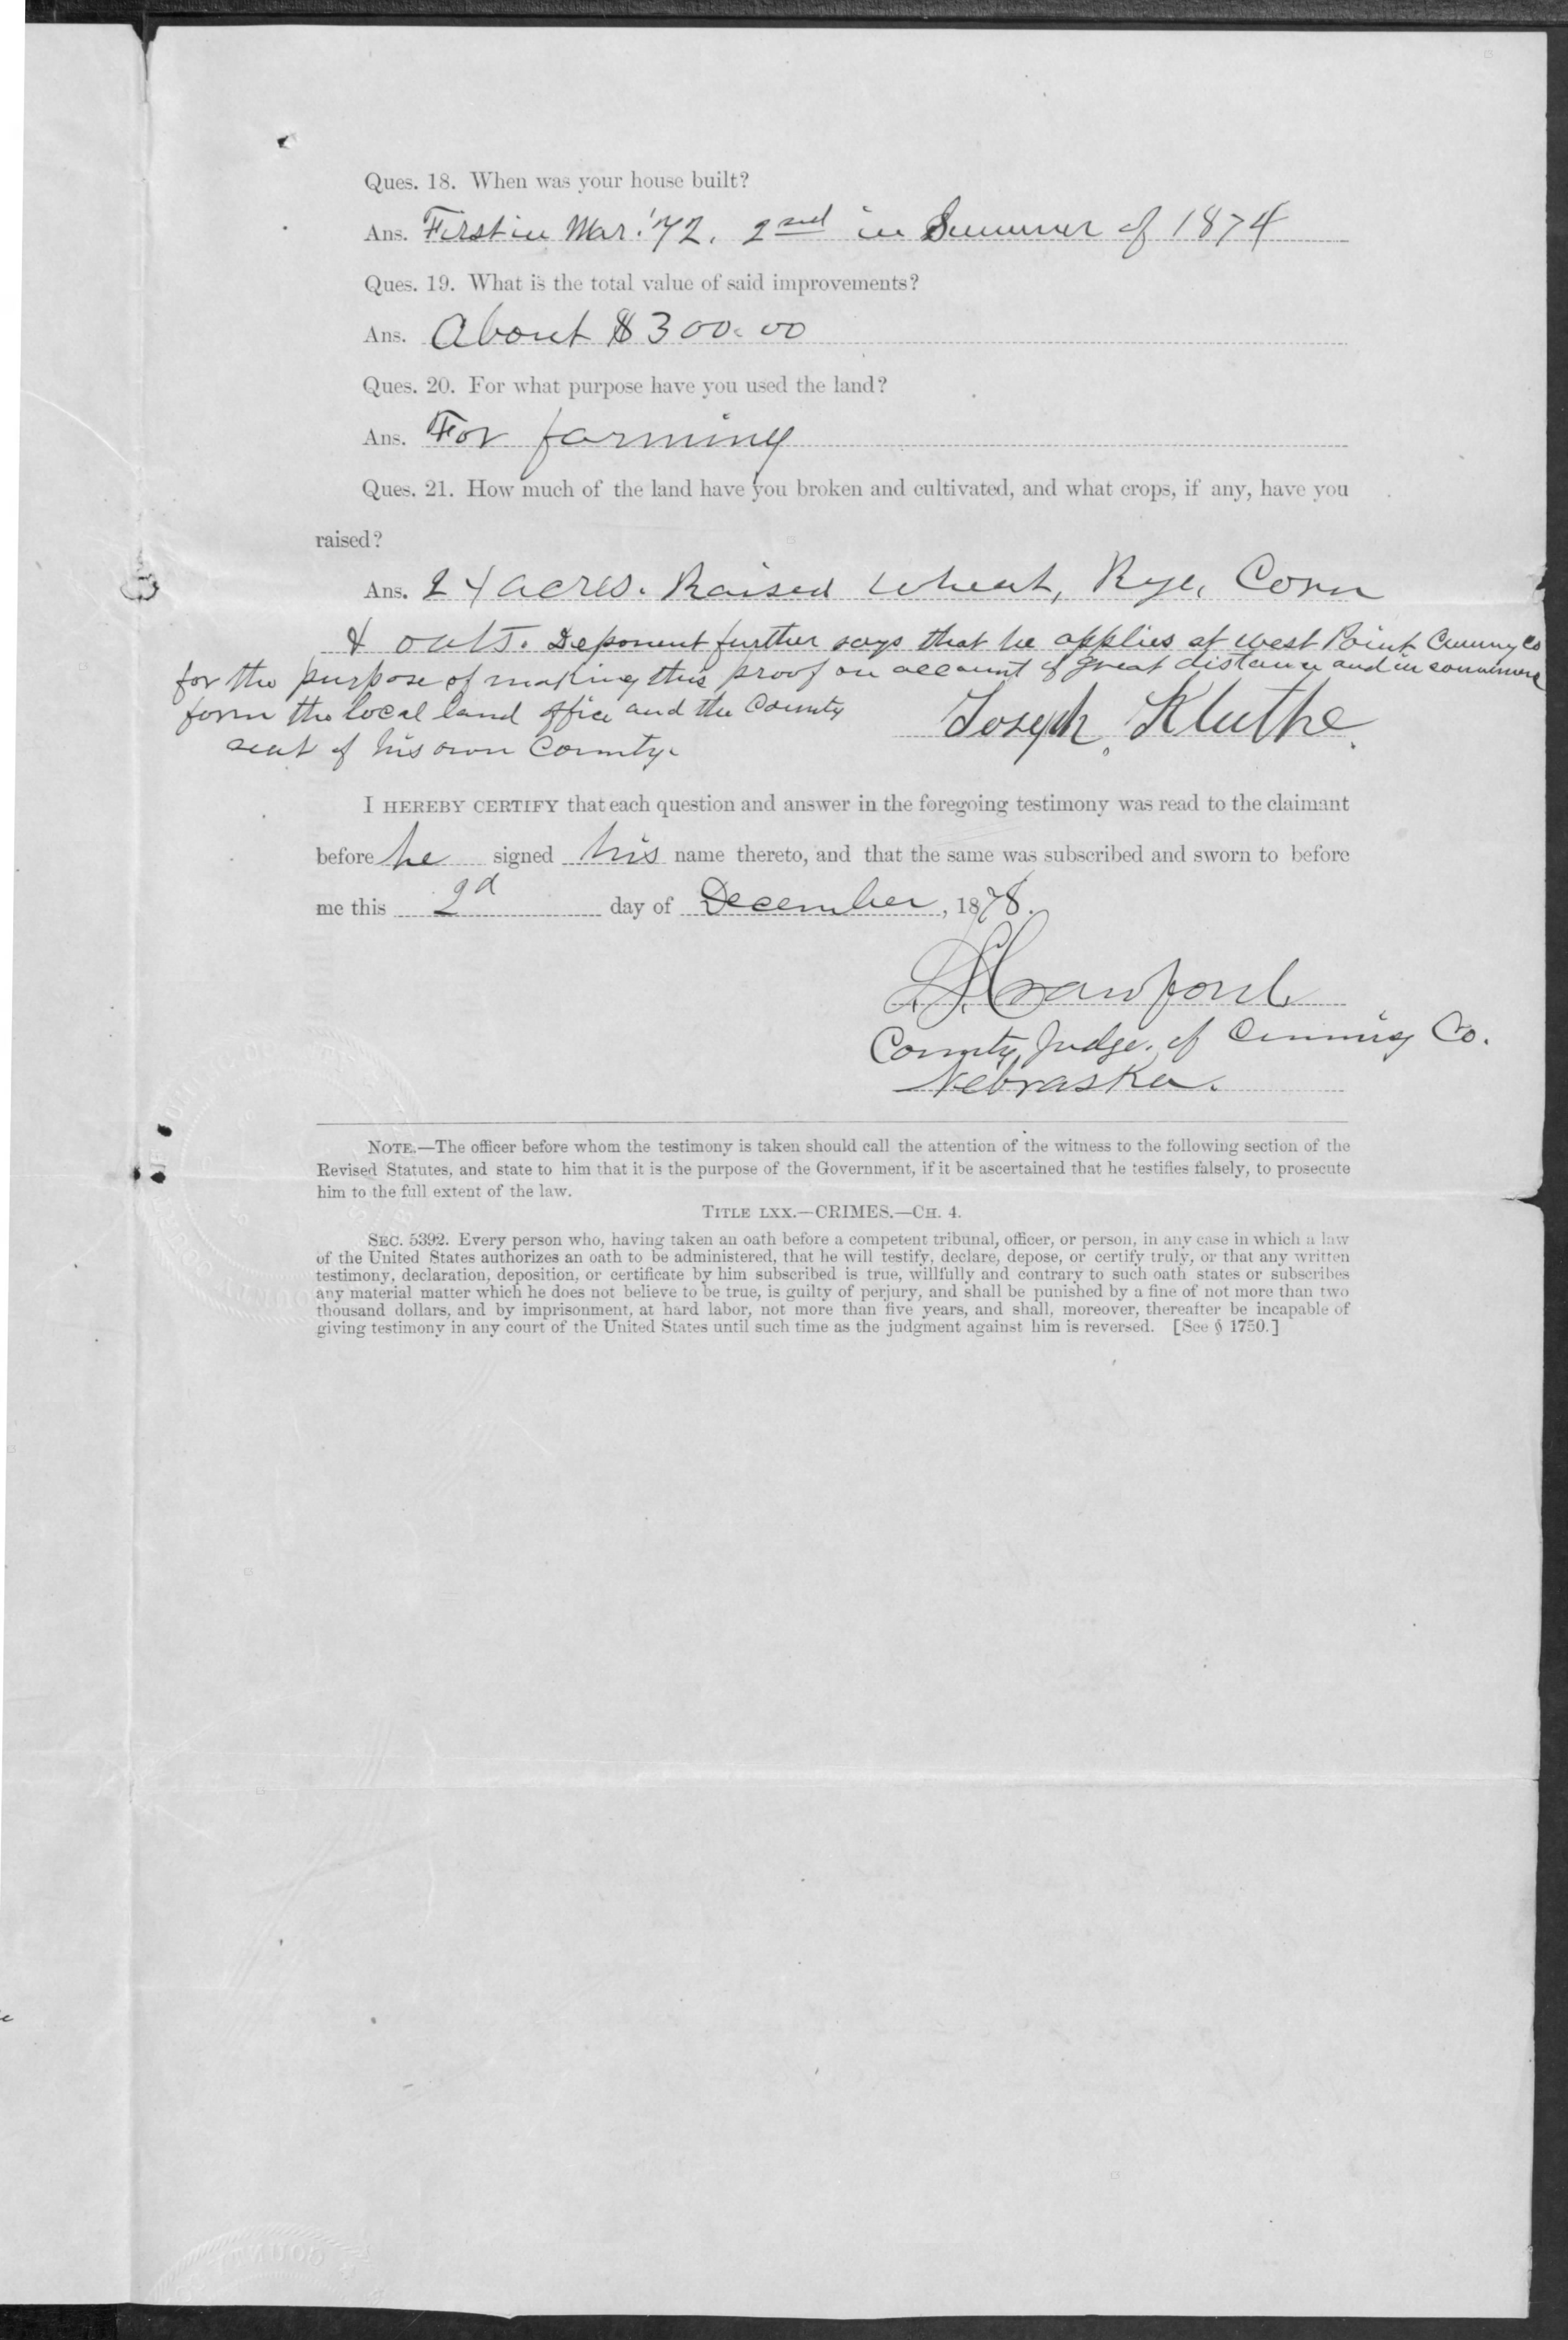 Ques. 18. When was your house built?
Ans. First in Mar. '72. 2nd in Summer of 1874
Ques. 19. What is the total value of said improvements?
Ans. About $300.00
Ques. 20. For what purpose have you used the land?
Ans. For farming
Ques. 21. How much of the land have you broken and cultivated, and what crops, if any, have you
raised?
Ans. 24 acres. Raised wheat, Rye, Corn
& oats. Deponent further says that he applies at West Point Cuming Co
for the purpose of making this proof on account of great distance and
form the local land office and the County
seat of his own County.
Joseph Kluthe
I HEREBY CERTIFY that each question and answer in the foregoing testimony was read to the claimant
before he signed his name thereto, and that the same was subscribed and sworn to before
me this 2d day of December, 1878.
Crawford
County Judge of Cuming Co.
Nebraska.
NOTE.—The officer before whom the testimony is taken should call the attention of the witness to the following section of the
Revised Statutes, and state to him that it is the purpose of the Government, if it be ascertained that he testifies falsely, to prosecute
him to the full extent of the law.
TITLE LXX.—CRIMES.—CH. 4.
SEC. 5392. Every person who, having taken an oath before a competent tribunal, officer, or person, in any case in which a law
of the United States authorizes an oath to be administered, that he will testify, declare, depose, or certify truly, or that any written
testimony, declaration, deposition, or certificate by him subscribed is true, willfully and contrary to such oath states or subscribes
any material matter which he does not believe to be true, is guilty of perjury, and shall be punished by a fine of not more than two
thousand dollars, and by imprisonment, at hard labor, not more than five years, and shall, moreover, thereafter be incapable of
giving testimony in any court of the United States until such time as the judgment against him is reversed. [See § 1750.]